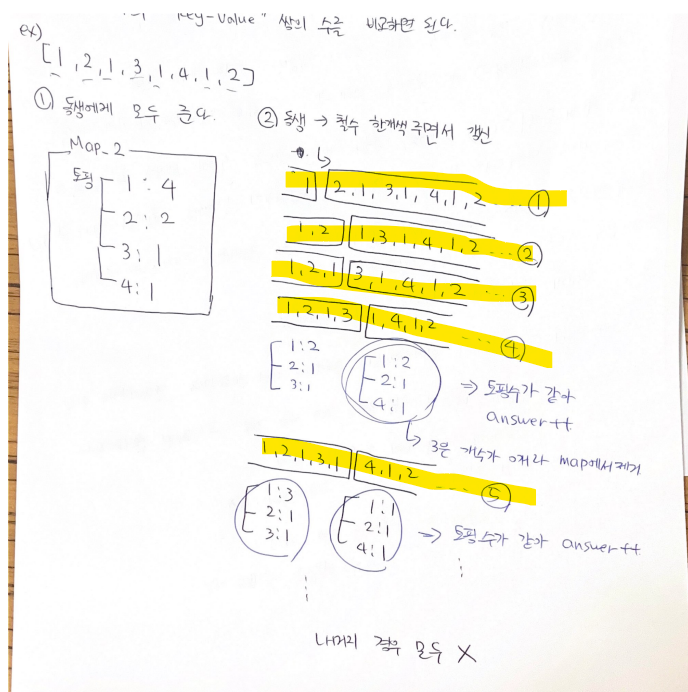 "Key-Value" 쌍의 수를 비교하면 된다.
ex)
[1, 2, 1, 3, 1, 4, 1, 2]
① 동생에게 모두 준다.
Map_2
토핑
1 : 4
2 : 2
3 : 1
4 : 1
② 동생 → 철수 한개씩 주면서 갱신
1 | 2, 1, 3, 1, 4, 1, 2 ... ①
1, 2 | 1, 3, 1, 4, 1, 2 ... ②
1, 2, 1 | 3, 1, 4, 1, 2 ... ③
1, 2, 1, 3 | 1, 4, 1, 2 ... ④
1:2
2:1
3:1
1:2
2:1
4:1
⇒ 토핑수가 같아
answer++
↳ 3은 개수가 0개라 map에서 제거
1, 2, 1, 3, 1 | 4, 1, 2 ... ⑤
1:3
2:1
3:1
1:1
2:1
4:1
⇒ 토핑수가 같아 answer++
나머지 경우 모두 X